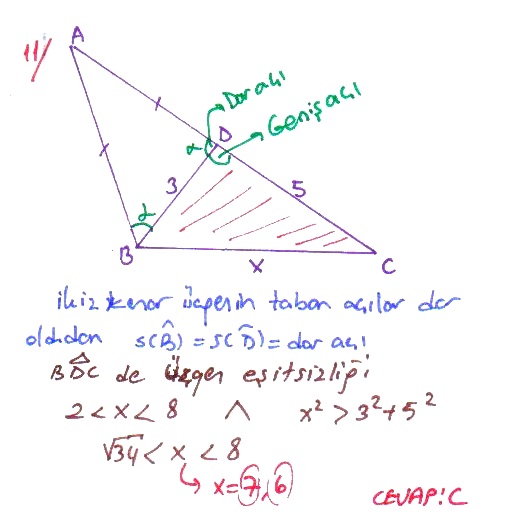 11/
A
Dar açı
Geniş açı
D
α
3
5
α
B
x
C
ikiz kenar üçgenin taban açılar dar
olduğundan s(B̂) = s(D̂) = dar açı
BDC de üçgen eşitsizliği
2 < x < 8 ∧ x² > 3² + 5²
√34 < x < 8
x = 7, 6
CEVAP: C